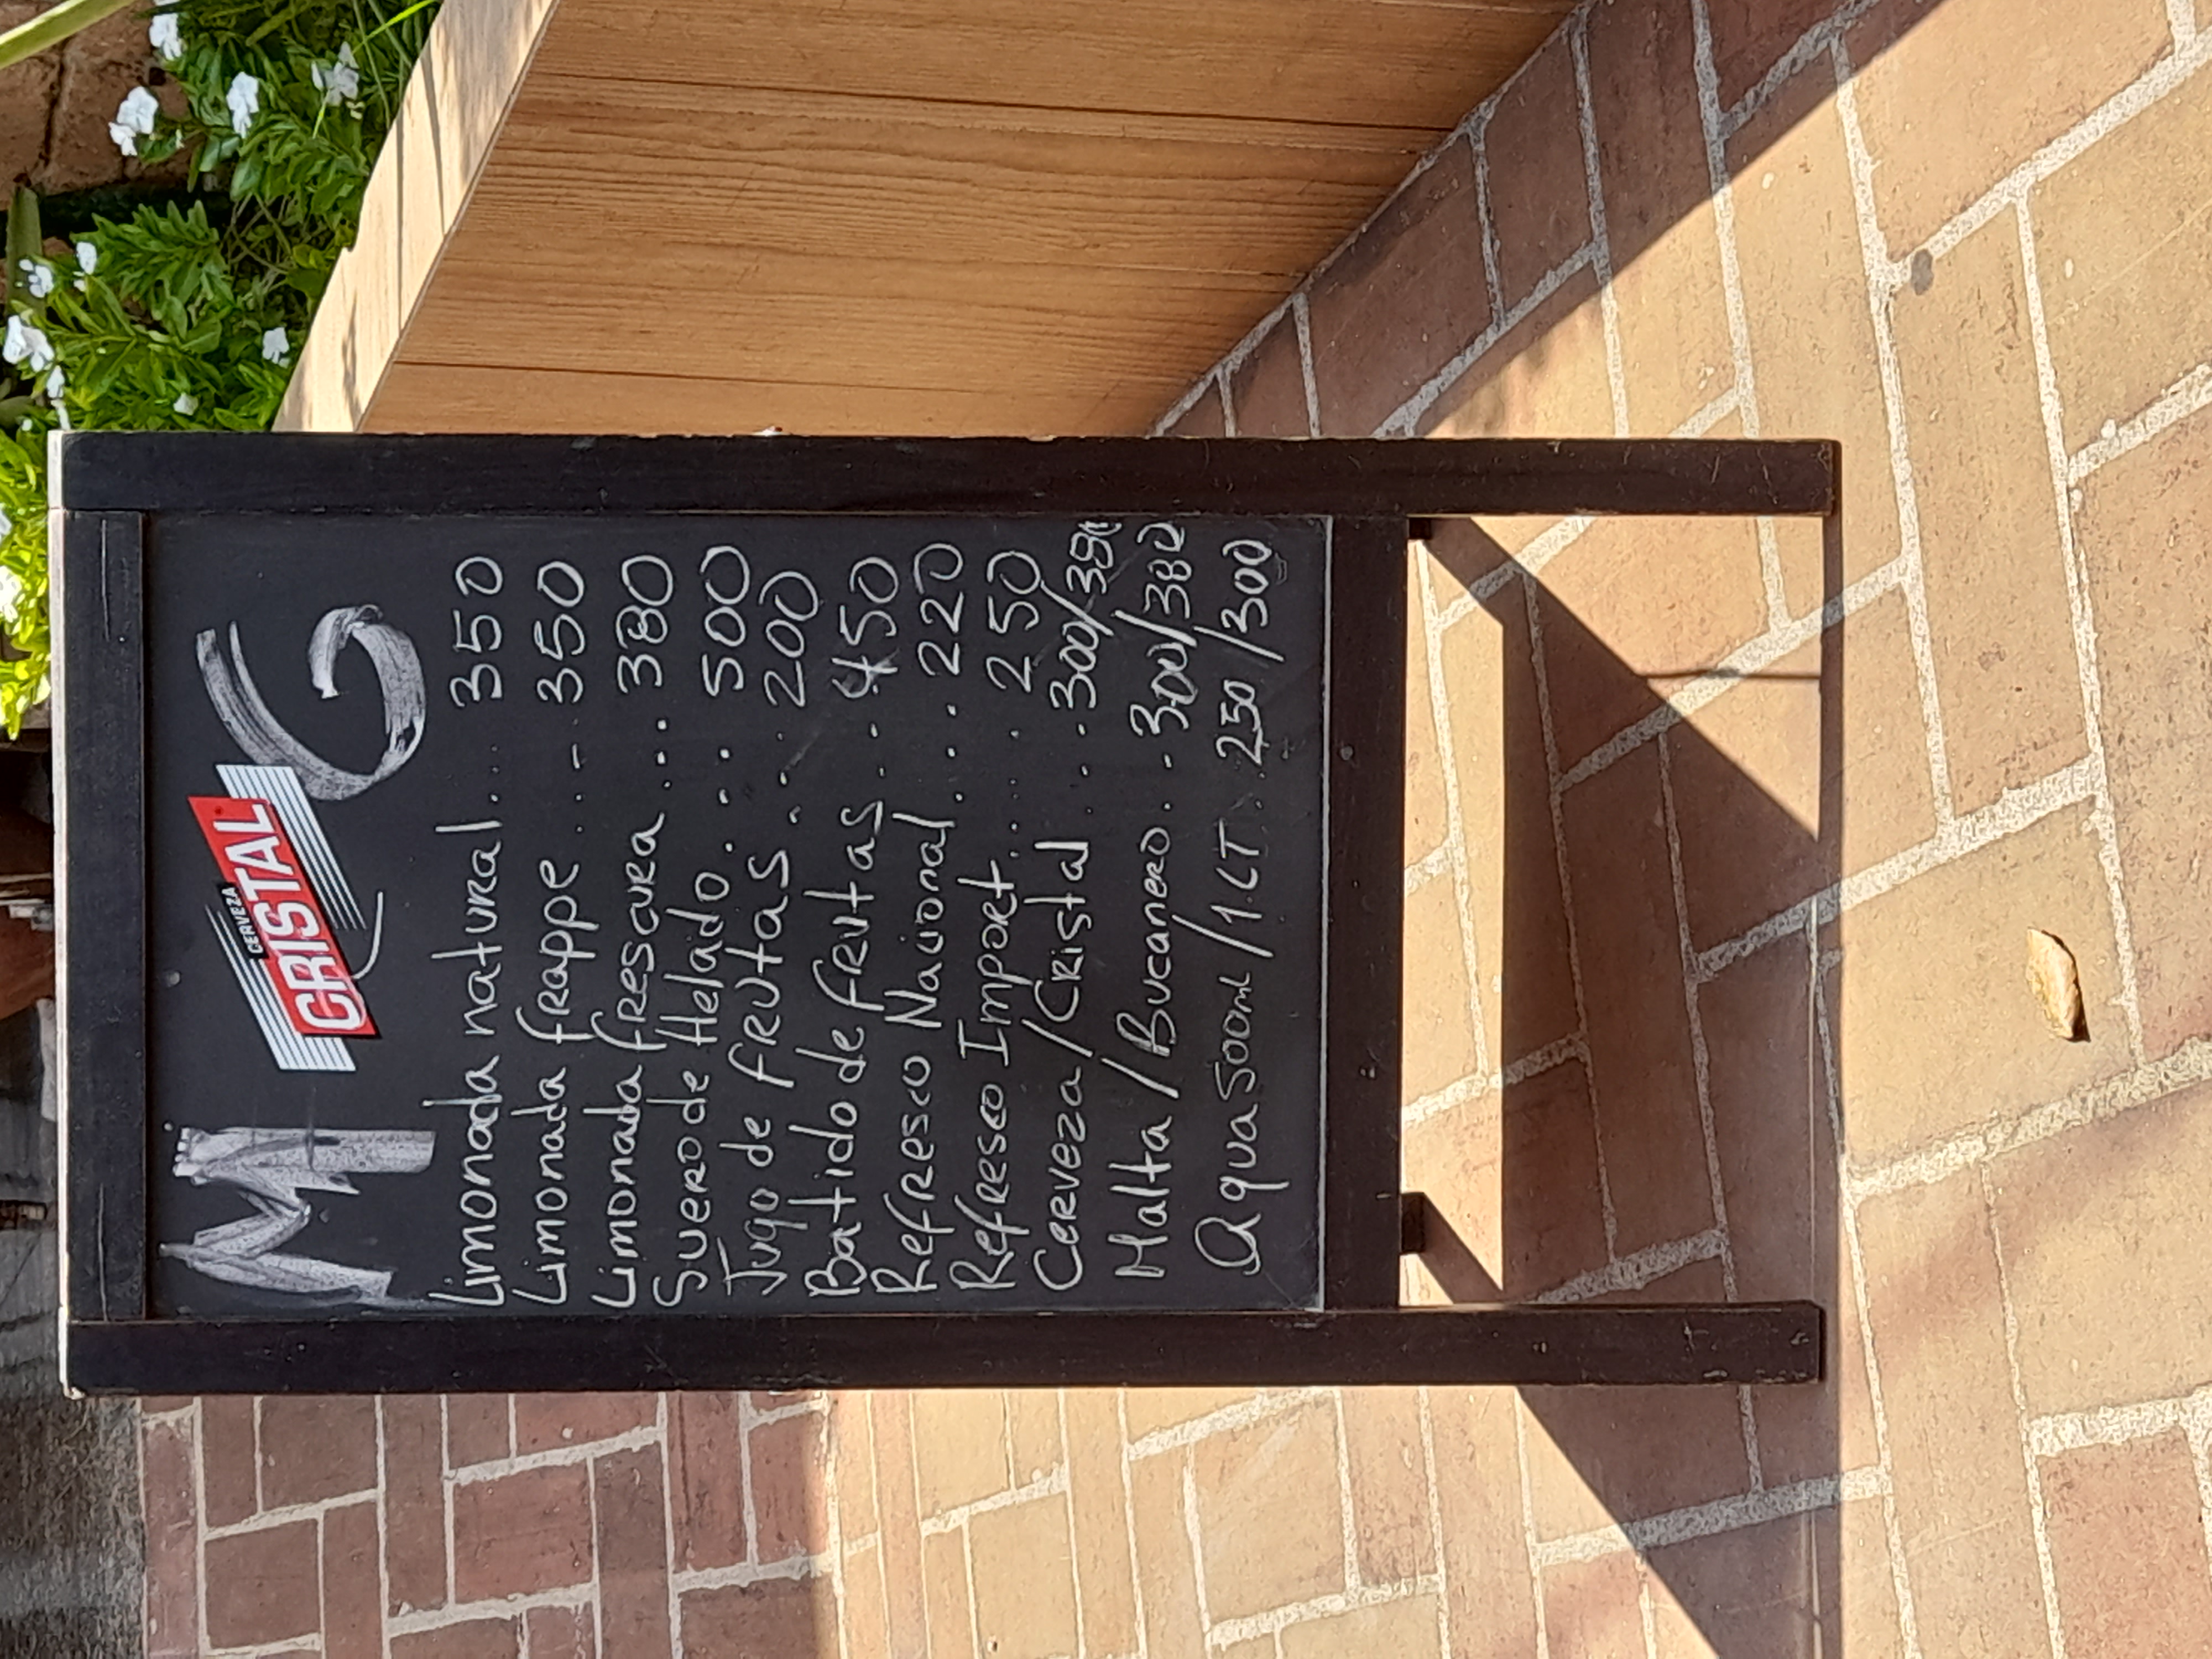 M G
CERVEZA
CRISTAL
Limonada natural... 350
Limonada frappe ..-. 350
Limonada frescura ... 380
Suero de Helado. .. 500
Jugo de frutas ... 200
Batido de frutas ... 450
Refresco Nacional... 220
Refresco Import.... . 250
Cerveza/Cristal ... 300/380
Malta/Bucanero. .- 300/380
Agua 500ml/1.LT .. 250/300